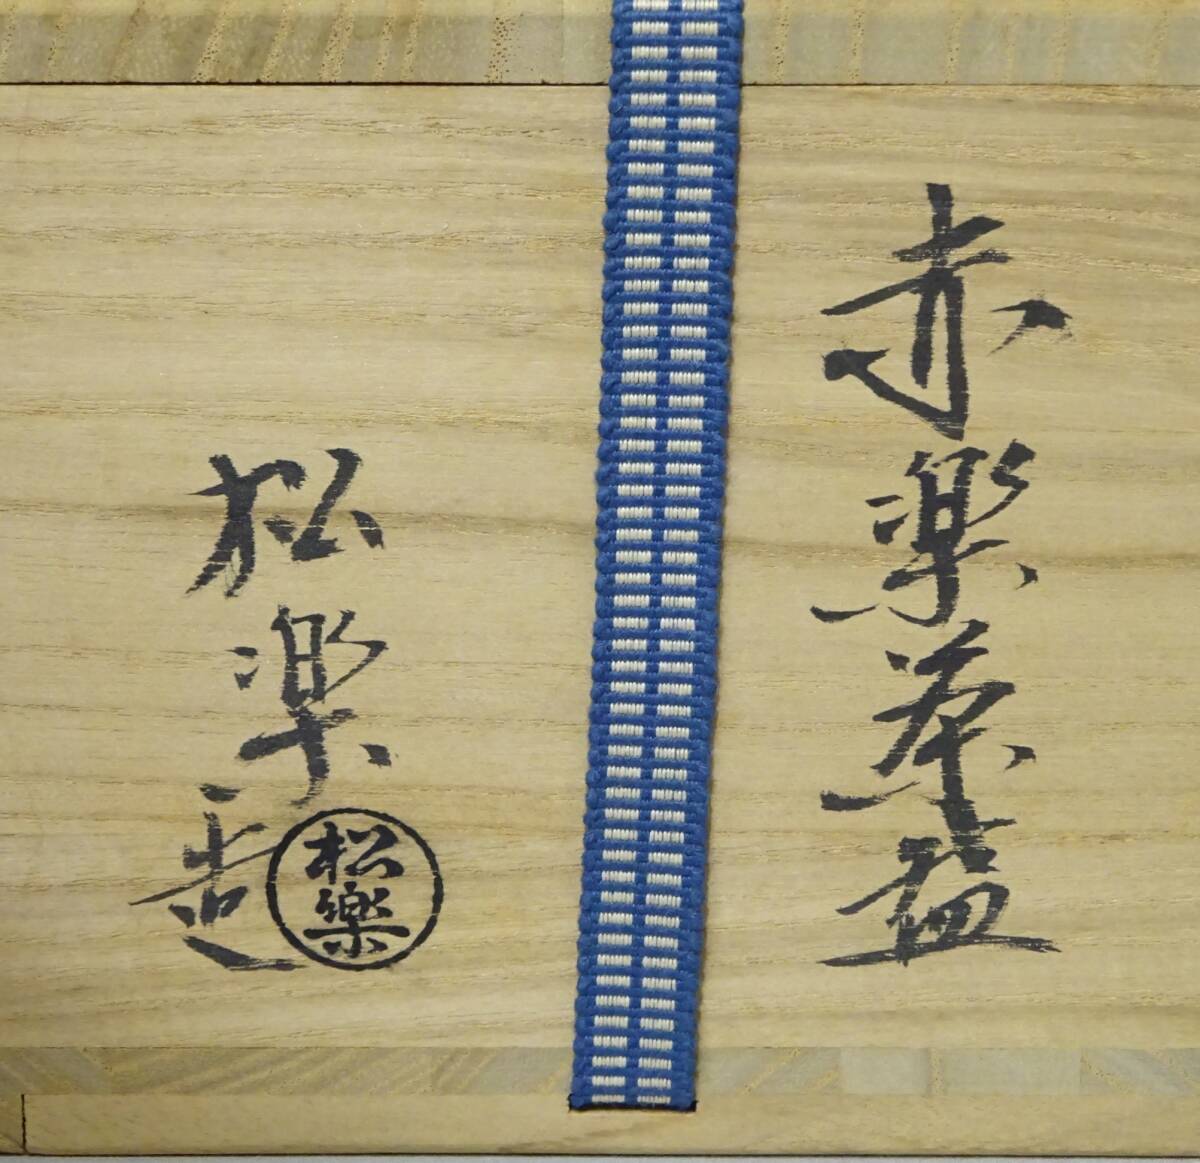 赤楽茶盌
松楽造
松樂